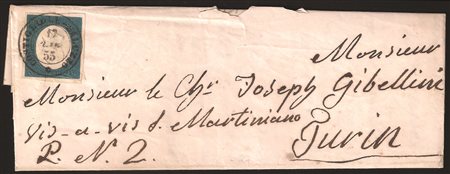 12
55
Monsieur
Monsieur le Chr Joseph Gibellini
vis-a-vis S. Martiniano
P. N. 2.
Turin